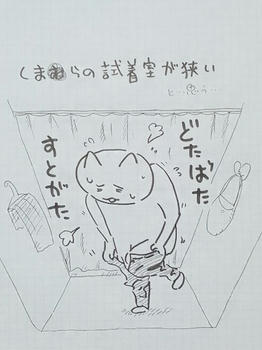 しまむらの試着室が狭い
と…思う…
どたばた
すとがた